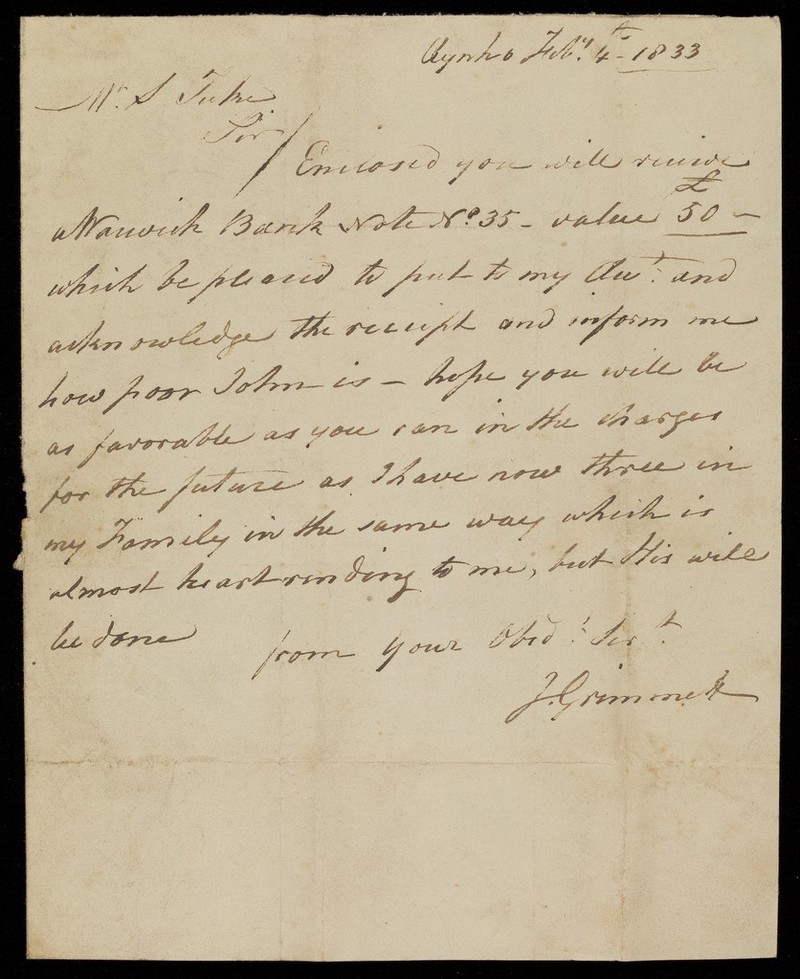 Aynho Feby. 4th - 1833
Mr. S Tuke
Sir/
Enclosed you will recieve
a Warwick Bank Note No. 35 - value £50 -
which be pleased to put to my Acct. and
acknowledge the receipt and inform me
how poor John is - hope you will be
as favorable as you can in the charges
for the future as I have now three in
my Family in the same way which is
almost heart rending to me, but His will
be done
from your Obedt. Servt.
J. Grimmett